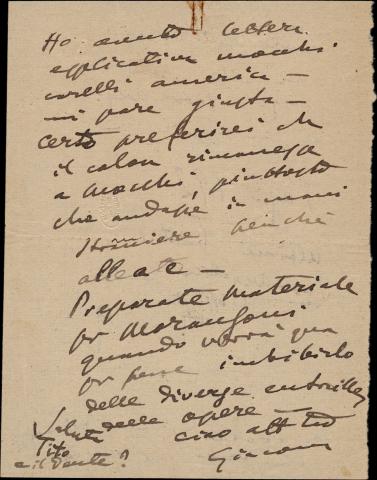 Ho avuto lettera
esplicativa mocchi
carelli america –
mi pare giusta –
certo preferirei che
il colon rimanesse
a Mocchi piuttosto
che andasse in mani
straniere benchè
alleate –
Preparate materiale
pr Marangoni
quando verrà qua
pr bene imbibirlo
delle diverse
delle opere –
Saluta Tito ciao aff tuo
e il Dante? Giacomo